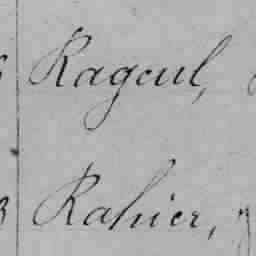 Rageul,
3 Rahier,